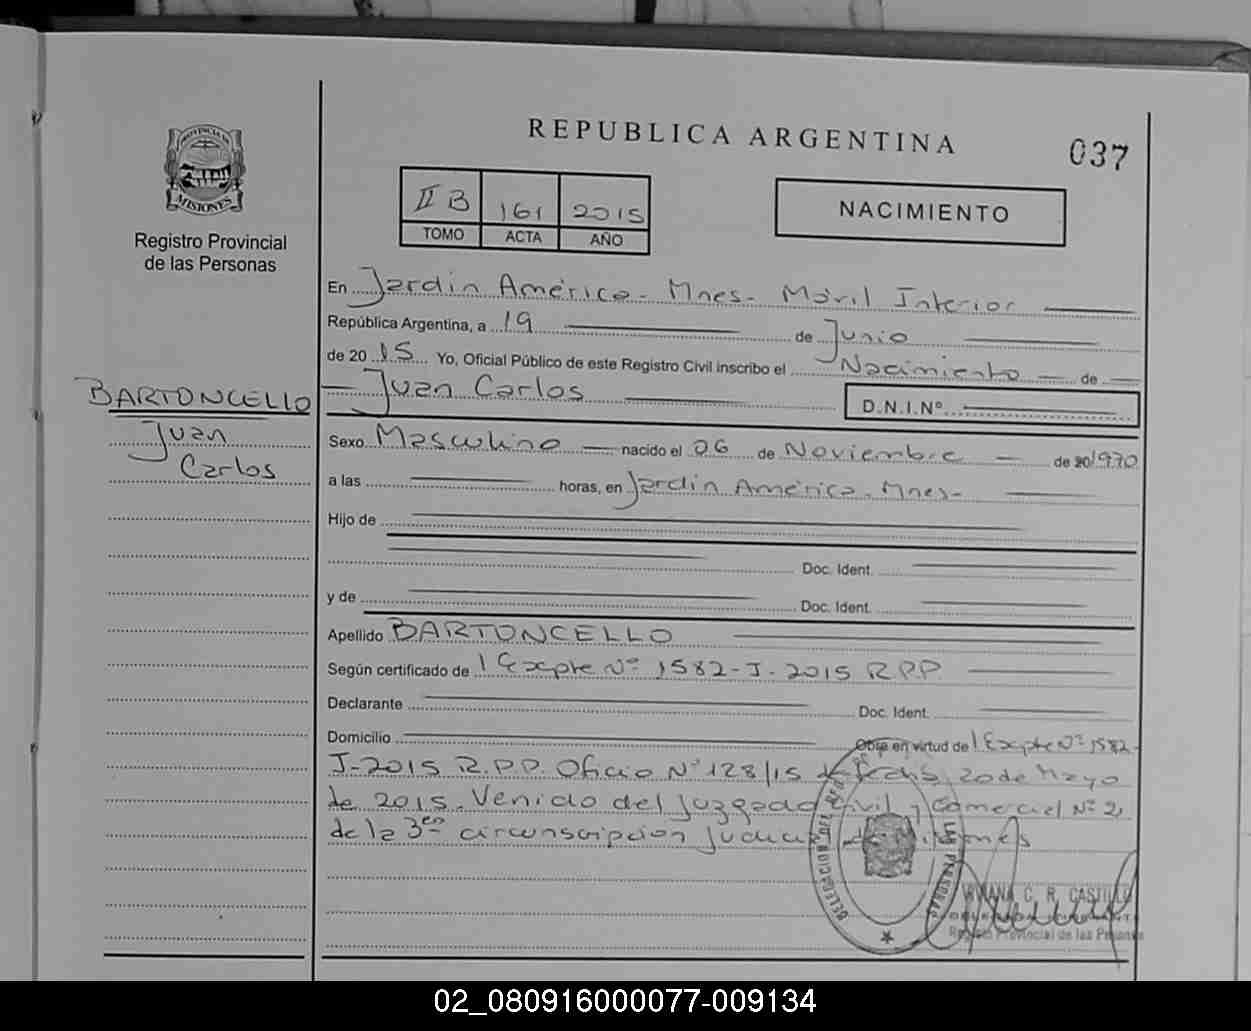 REPUBLICA ARGENTINA
037
PROVINCIA DE
MISIONES
Registro Provincial
de las Personas
II B 161 2015
TOMO ACTA AÑO
NACIMIENTO
En Jardín América - Mnes - Móvil Interior
República Argentina, a 19 de Junio
de 20 15 Yo, Oficial Público de este Registro Civil inscribo el Nacimiento de
Juan Carlos D.N.I.Nº
BARTONCELLO
Juan
Carlos
Sexo Masculino nacido el 06 de Noviembre de 20 1970
a las horas, en Jardín América - Mnes -
Hijo de
Doc. Ident.
y de Doc. Ident.
Apellido BARTONCELLO
Según certificado de 1 Expte Nº 1582-J-2015 R.P.P.
Declarante Doc. Ident.
Domicilio Obra en virtud de 1 Expte Nº 1582-
J-2015 R.P.P. Oficio Nº 128/15 de fecha 20 de Mayo
de 2015. Venido del Juzgado Civil y Comercial Nº 2
de la 3era circunscripcion Judicial de Misiones
LAS PERSONAS
C. R. CASTILLO
Registro Provincial de las Personas
02_080916000077-009134